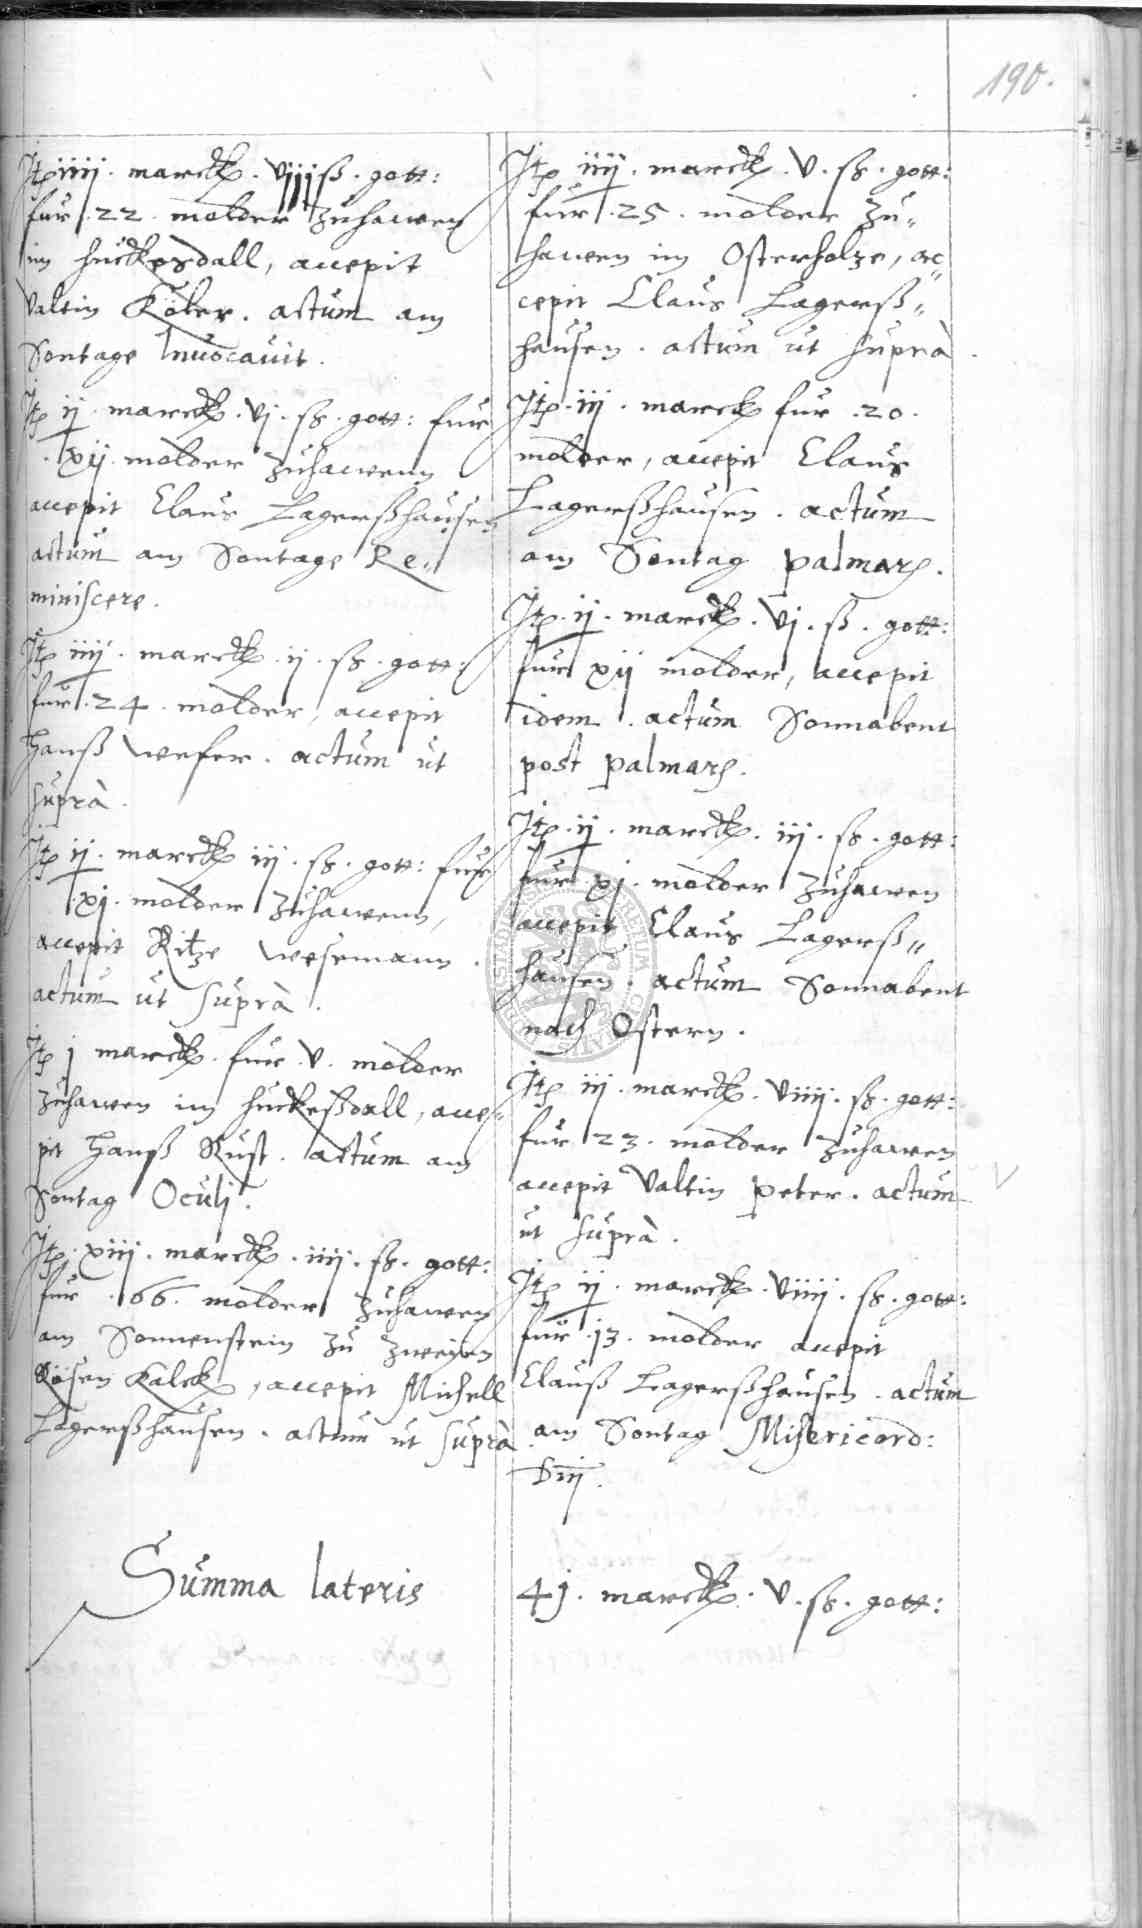 190.
Jtp iiij. marck. viij ß. gott:
fur .22. molder zuhawen
im huckeßdall, accepit
Valtin Köler. actum am
Sontage Inuocauit.
Jtp ij. marck. vj. ß. gott: fur
. xij. molder zuhawenn
accepit Claus Lagerßhausen
actum am Sontage Re„
miniscere.
Jtp iiij. marck. ij. ß. gott:
fur .24. molder, accepit
Hanß wefer. actum ut
suprà.
Jtp ij. marck iij. ß. gott: fur
.xj. molder zuhawenn,
accepit Ritze wesemann.
actum ut suprà.
Jtp j marck. fur .v. molder
zuhawen im huckeßdall, acce„
pit Hanß Rust. actum am
Sontag Oculj.
Jtp. xiij. marck. iiij. ß. gott:
fur .66. molder zuhawen
am Sonnenstein zu zweyen
Rösen Kalck, accepit Michell
Lagerßhausen. actum ut suprà
Jtp iiij. marck. v. ß. gott:
fur .25. molder zu„
hawen im Osterholze, ac„
cepit Claus Lagerß„
hausen. actum ut suprà.
Jtp. iij. marck fur .20.
molder, accepit Claus
Lagerßhausen. actum
am Sontag palmarum.
Jtp. ij. marck. vj. ß. gott:
fur xij molder, accepit
idem. actum Sonnabent
post palmarum.
Jtp. ij. marck. iij. ß. gott:
fur xj. molder zuhawen
accepit Claus Lagerß„
hausen. actum Sonnabent
nach Ostern.
Jtp iij. marck. viiij. ß. gott:
fur 23. molder zuhawen
accepit Valtin peter. actum
ut suprà.
Jtp ij. marck. viiij. ß. gott:
fur .13. molder accepit
Clauß Lagerßhausen. actum
am Sontag Misericord:
Dnj.
Summa lateris 4j. marck. v. ß. gott: